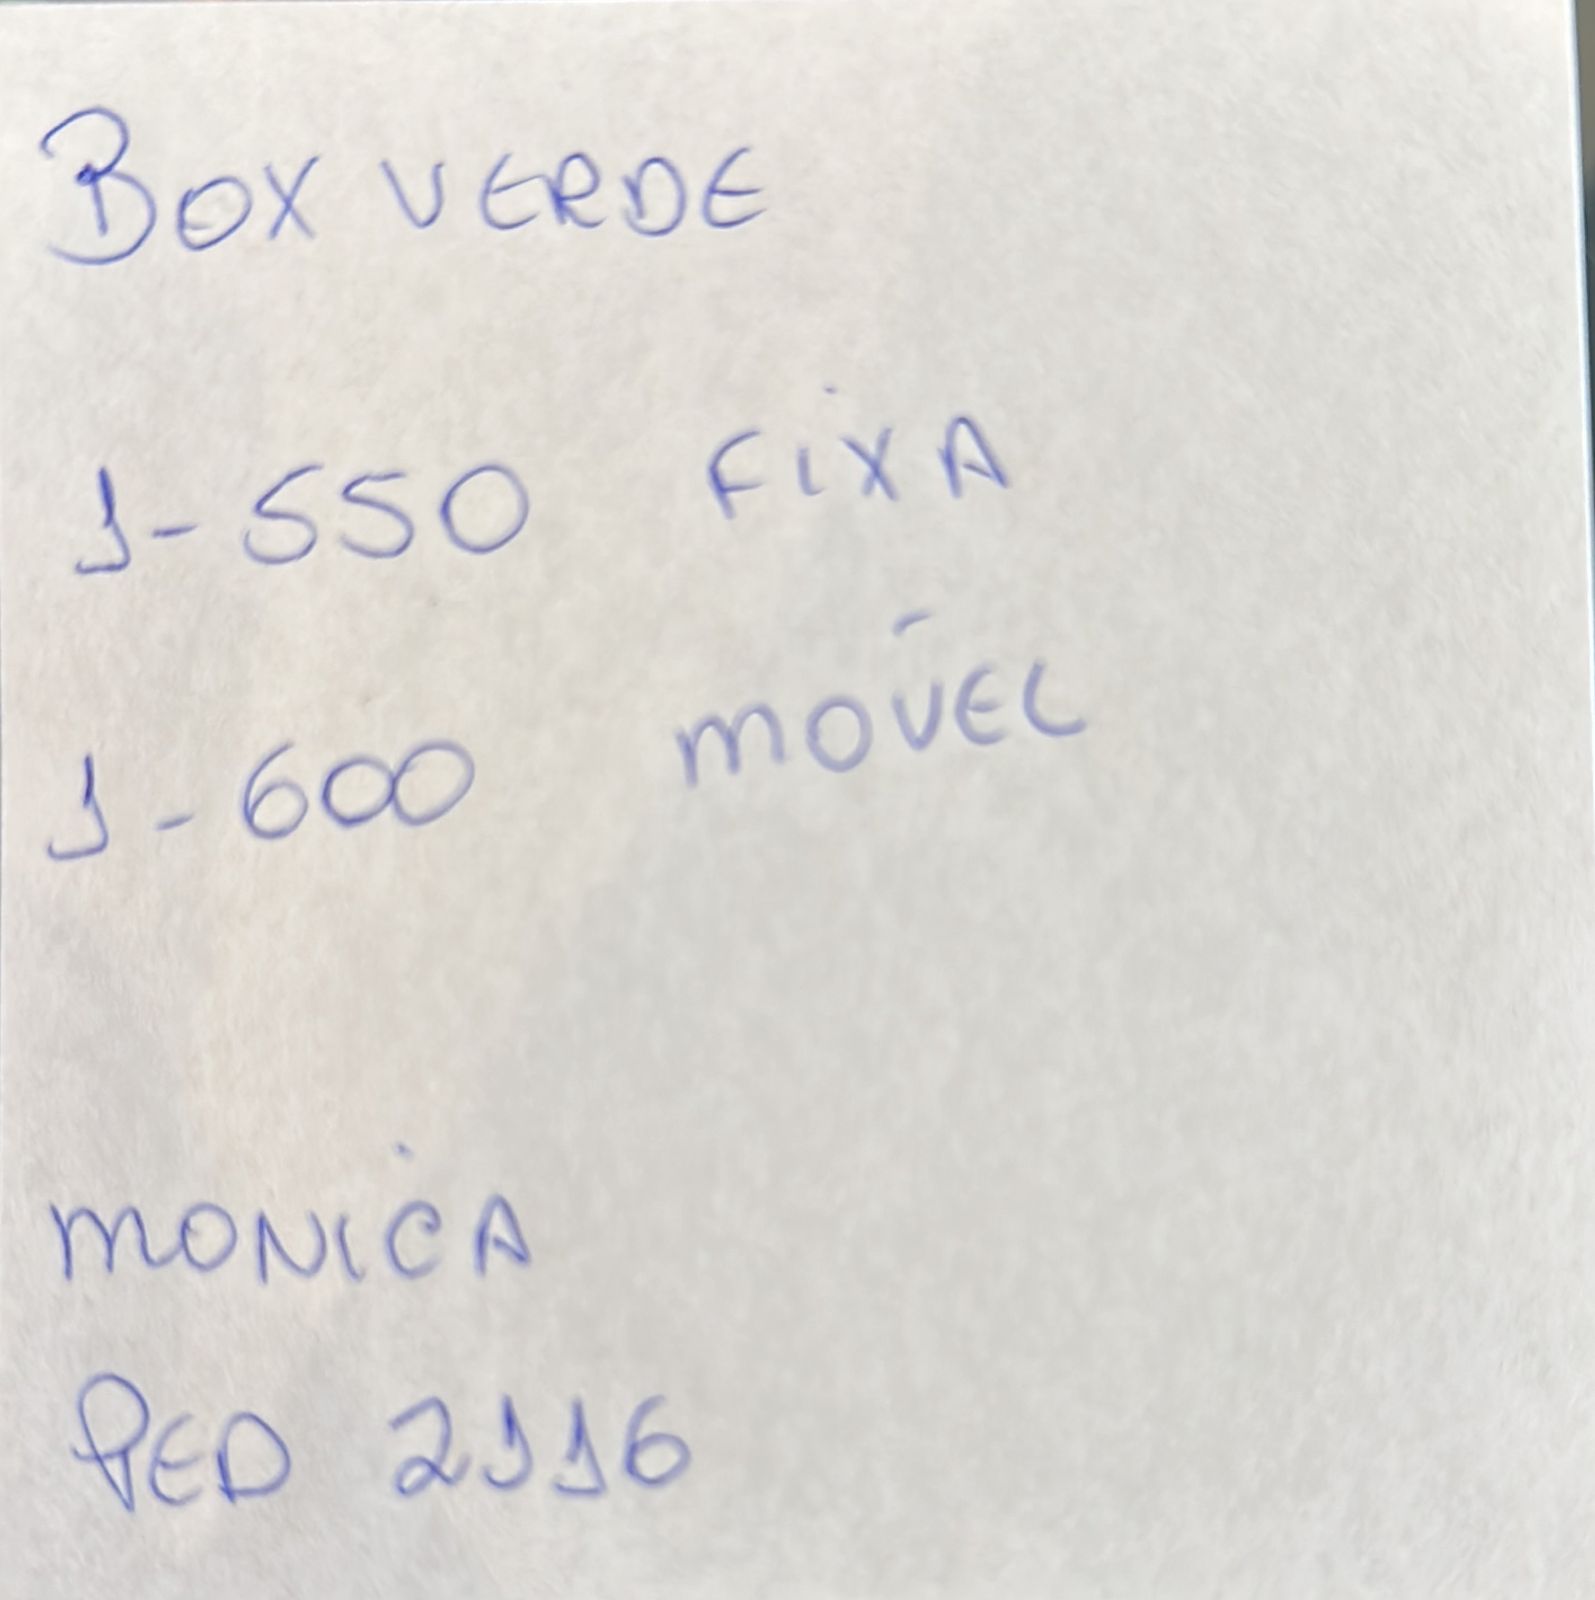 BOX VERDE
1-550 FIXA
1-600 MÓVEL
MONICA
PED 2116